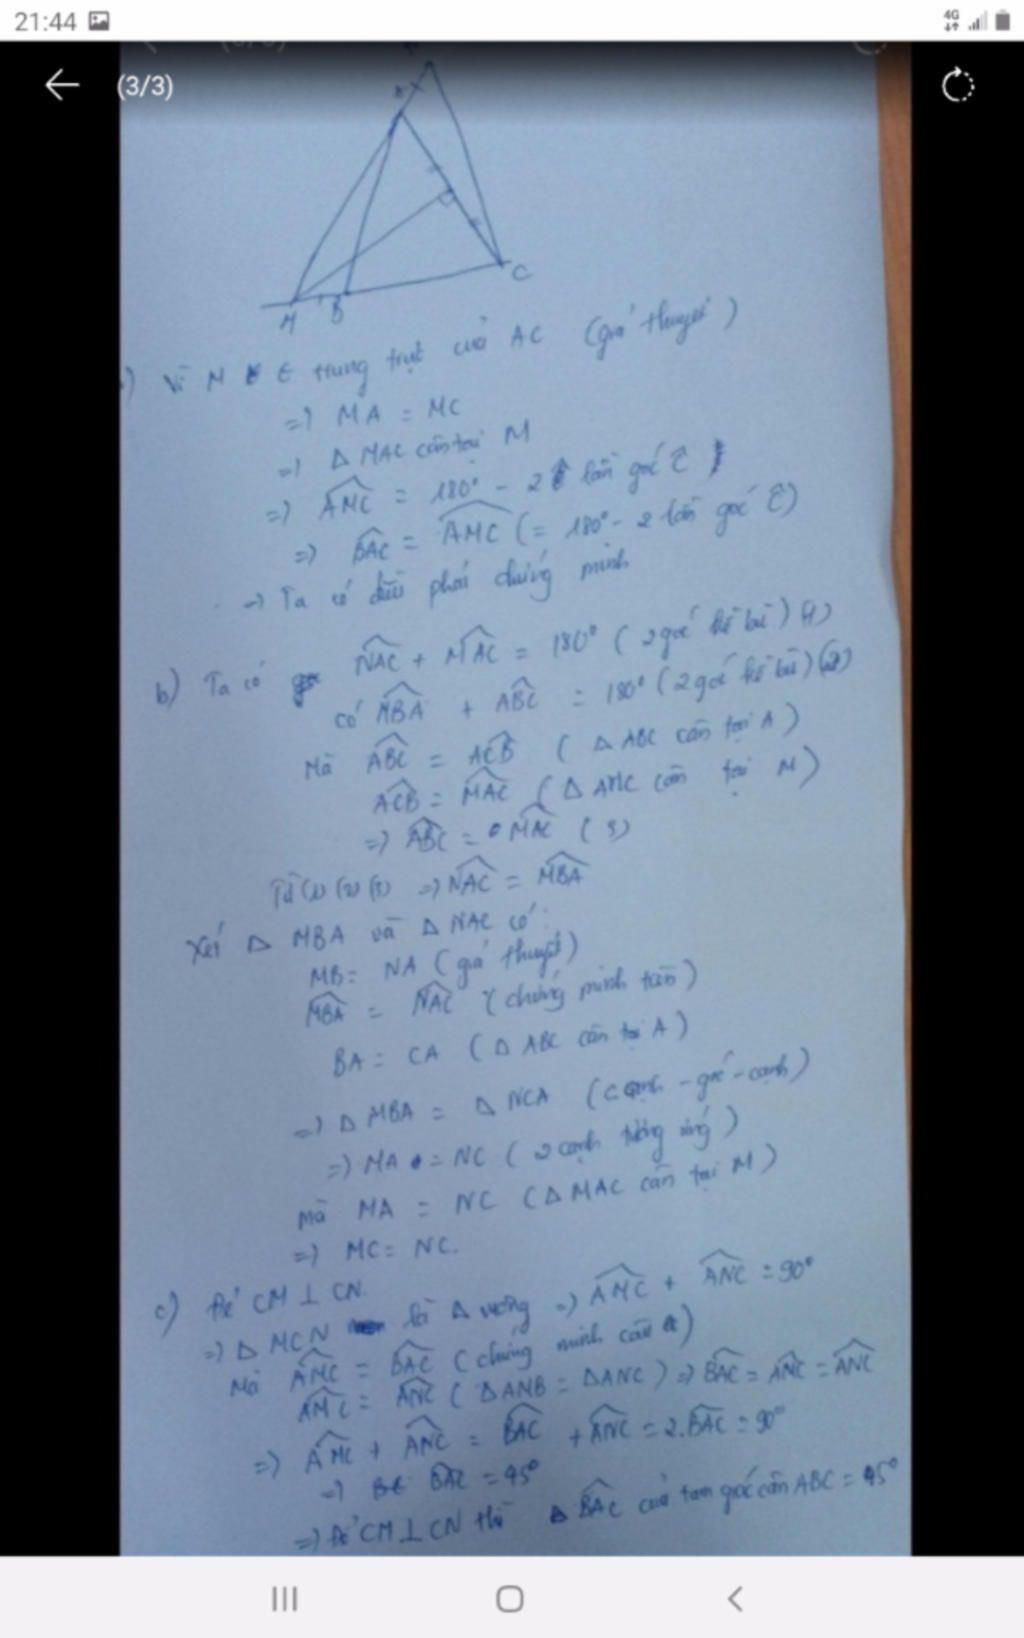 21:44
4G
(3/3)
A
M
B
C
Vì M ∈ trung trực của AC (giả thuyết)
=) MA = MC
=) Δ MAC cân tại M
=) AMC = 180° - 2 lần góc C
=) BAC = AMC (= 180° - 2 lần góc C)
=) Ta có điều phải chứng minh
b) Ta có NAC + MAC = 180° (2 góc kề bù) (1)
có MBA + ABC = 180° (2 góc kề bù) (2)
Mà ABC = ACB (Δ ABC cân tại A)
ACB = MAC (Δ AMC cân tại M)
=) ABC = MAC (3)
Từ (1) (2) (3) =) NAC = MBA
Xét Δ MBA và Δ NAC có:
MB = NA (giả thuyết)
MBA = NAC (chứng minh trên)
BA = CA (Δ ABC cân tại A)
=) Δ MBA = Δ NCA (cạnh - góc - cạnh)
=) MA = NC (2 cạnh tương ứng)
mà MA = NC (Δ MAC cân tại M)
=) MC = NC.
c) Để CM ⊥ CN
=) Δ MCN là Δ vuông =) AMC + ANC = 90°
Mà AMC = BAC (chứng minh câu a)
AMC = ANC (ΔAMB = ΔANC) =) BAC = AMC = ANC
=) AMC + ANC = BAC + ANC = 2.BAC = 90°
=) BAC = 45°
=) Để CM ⊥ CN thì BAC của tam giác cân ABC = 45°